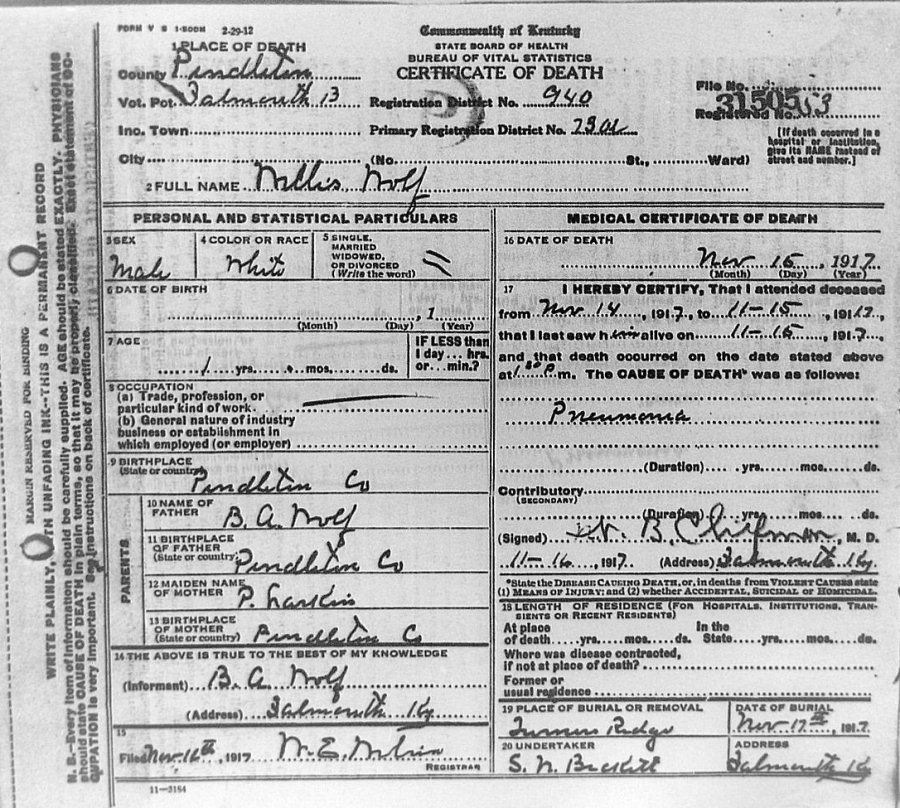 FORM V S 1-500M 2-29-12
Commonwealth of Kentucky
STATE BOARD OF HEALTH
BUREAU OF VITAL STATISTICS
CERTIFICATE OF DEATH
1 PLACE OF DEATH
County Pendleton
Vot. Pct. Falmouth 13
Registration District No. 940
File No.
31505
Registered No. 53
Inc. Town
Primary Registration District No.
[If death occurred in a hospital or institution, give its NAME instead of street and number.]
City (No. St., Ward)
2 FULL NAME Willis Wolf
PERSONAL AND STATISTICAL PARTICULARS
3 SEX
Male
4 COLOR OR RACE
White
5 SINGLE,
MARRIED
WIDOWED,
OR DIVORCED
(Write the word)
6 DATE OF BIRTH
, 1
(Month) (Day) (Year)
7 AGE
1 yrs. mos. ds.
IF LESS than
1 day... hrs.
or... min.?
8 OCCUPATION
(a) Trade, profession, or
particular kind of work
(b) General nature of industry
business or establishment in
which employed (or employer)
9 BIRTHPLACE
(State or country)
Pendleton Co
PARENTS
10 NAME OF
FATHER B. A. Wolf
11 BIRTHPLACE
OF FATHER
(State or country) Pendleton Co
12 MAIDEN NAME
OF MOTHER P. Larkin
13 BIRTHPLACE
OF MOTHER
(State or country) Pendleton Co
14 THE ABOVE IS TRUE TO THE BEST OF MY KNOWLEDGE
(Informant) B. A. Wolf
(Address) Falmouth Ky
15
Filed Nov 16th, 1917 W. E.
REGISTRAR
11-3184
MEDICAL CERTIFICATE OF DEATH
16 DATE OF DEATH
Nov 15, 1917
(Month) (Day) (Year)
17 I HEREBY CERTIFY, That I attended deceased
from Nov 14, 1917, to 11-15, 1917,
that I last saw him alive on 11-15, 1917,
and that death occurred on the date stated above
at m. The CAUSE OF DEATH* was as follows:
Pneumonia
(Duration) yrs. mos. ds.
Contributory
(SECONDARY)
(Duration) yrs. mos. ds.
(Signed) B. M. D.
11-16, 1917 (Address) Falmouth Ky.
*State the DISEASE CAUSING DEATH, or, in deaths from VIOLENT CAUSES state
(1) MEANS OF INJURY; and (2) whether ACCIDENTAL, SUICIDAL or HOMICIDAL.
18 LENGTH OF RESIDENCE (FOR HOSPITALS, INSTITUTIONS, TRAN-
SIENTS OR RECENT RESIDENTS)
At place In the
of death yrs. mos. ds. State yrs. mos. ds.
Where was disease contracted,
if not at place of death?
Former or
usual residence
19 PLACE OF BURIAL OR REMOVAL
Turners Ridge
DATE OF BURIAL
Nov 17th, 1917
20 UNDERTAKER
S. N. Beckett
ADDRESS
Falmouth Ky
MARGIN RESERVED FOR BINDING
WRITE PLAINLY, WITH UNFADING INK--THIS IS A PERMANENT RECORD
N. B.--Every item of information should be carefully supplied. AGE should be stated EXACTLY. PHYSICIANS
should state CAUSE OF DEATH in plain terms, so that it may be properly classified. Exact statement of OC-
CUPATION is very important. See instructions on back of certificate.